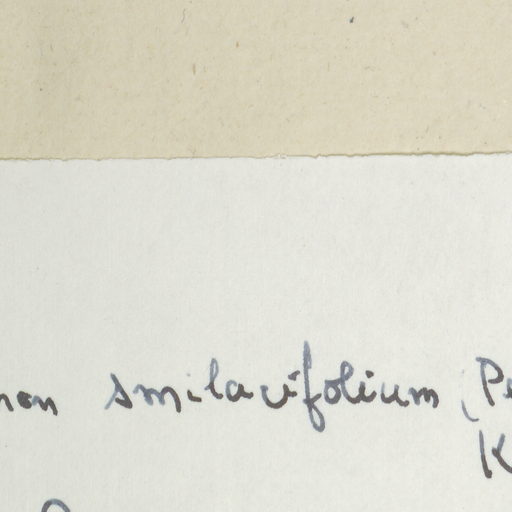 non smilacifolium (Pe
K